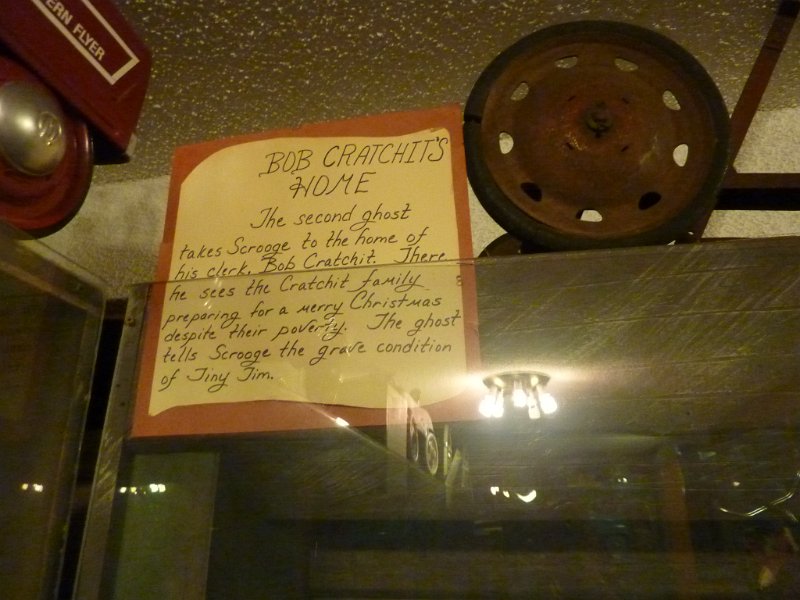 ERN FLYER
BOB CRATCHIT'S
HOME
The second ghost
takes Scrooge to the home of
his clerk, Bob Cratchit. There
he sees the Cratchit family
preparing for a merry Christmas
despite their poverty. The ghost
tells Scrooge the grave condition
of Tiny Tim.